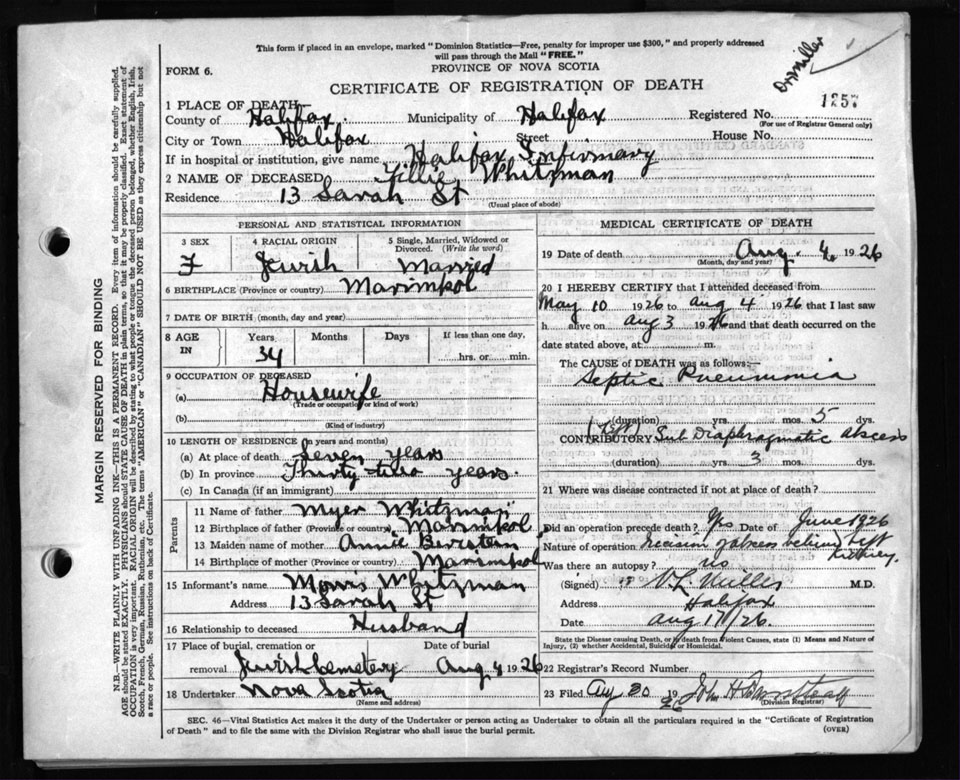 This form if placed in an envelope, marked "Dominion Statistics—Free, penalty for improper use $300," and properly addressed
will pass through the Mail "FREE."
PROVINCE OF NOVA SCOTIA
FORM 6.
CERTIFICATE OF REGISTRATION OF DEATH
Dr Miller
1257
1 PLACE OF DEATH—
County of Halifax. Municipality of Halifax Registered No.
(For use of Registrar General only)
City or Town Halifax Street House No.
If in hospital or institution, give name Halifax Infirmary
2 NAME OF DECEASED Tillie Whitzman
Residence 13 Sarah St
(Usual place of abode)
MARGIN RESERVED FOR BINDING
N.B.—WRITE PLAINLY WITH UNFADING INK—THIS IS A PERMANENT RECORD. Every item of information should be carefully supplied.
AGE should be stated EXACTLY. PHYSICIANS should STATE CAUSE OF DEATH in plain terms, so that it may be properly classified. Exact statement of
OCCUPATION is very important. RACIAL ORIGIN will be described by stating to what people or tongue the deceased person belonged, whether English, Irish,
Scotch, French, German, Russian, Ruthenian, etc. The terms "AMERICAN" or "CANADIAN" SHOULD NOT BE USED as they express citizenship but not
a race or people. See instructions on back of Certificate.
PERSONAL AND STATISTICAL INFORMATION
3 SEX
F
4 RACIAL ORIGIN
Jewish
5 Single, Married, Widowed or
Divorced. (Write the word)
Married
6 BIRTHPLACE (Province or country) Marimkol
7 DATE OF BIRTH (month, day and year)
8 AGE
IN
Years Months Days If less than one day,
34
hrs. or min.
9 OCCUPATION OF DECEASED
(a) Housewife
(Trade or occupation or kind of work)
(b)
(Kind of industry)
10 LENGTH OF RESIDENCE (in years and months)
(a) At place of death seven years
(b) In province Thirty two years.
(c) In Canada (if an immigrant)
Parents
11 Name of father Myer Whitzman
12 Birthplace of father (Province or country) Marimkol
13 Maiden name of mother Annie Berstein
14 Birthplace of mother (Province or country) Marimkol
15 Informant's name Morris Whitzman
Address 13 Sarah St
16 Relationship to deceased Husband
17 Place of burial, cremation or Date of burial
removal Jewish Cemetery Aug 4 1926
18 Undertaker Nova Scotia
(Name and address)
MEDICAL CERTIFICATE OF DEATH
19 Date of death Aug. 4. 1926
(Month, day and year)
20 I HEREBY CERTIFY that I attended deceased from
May 10 1926 to Aug 4 1926 that I last saw
h alive on Aug 3 1926 and that death occurred on the
date stated above, at m.
The CAUSE OF DEATH was as follows:—
Septic Pneumonia
(duration) yrs. mos. 5 dys.
CONTRIBUTORY Sub Diaphragmatic abscess
(duration) yrs. 3 mos. dys.
21 Where was disease contracted if not at place of death?
Did an operation precede death? Yes Date of June 1926
Nature of operation incision of abscess behind left
kidney.
Was there an autopsy? no
(Signed) V L Miller M.D.
Address Halifax
Date Aug 17/26.
State the Disease causing Death, or if death from Violent Causes, state (1) Means and Nature of
Injury, (2) whether Accidental, Suicidal or Homicidal.
22 Registrar's Record Number
23 Filed Aug 20 1926 John H
(Division Registrar)
SEC. 46—Vital Statistics Act makes it the duty of the Undertaker or person acting as Undertaker to obtain all the particulars required in the "Certificate of Registration
of Death" and to file the same with the Division Registrar who shall issue the burial permit.
(OVER)